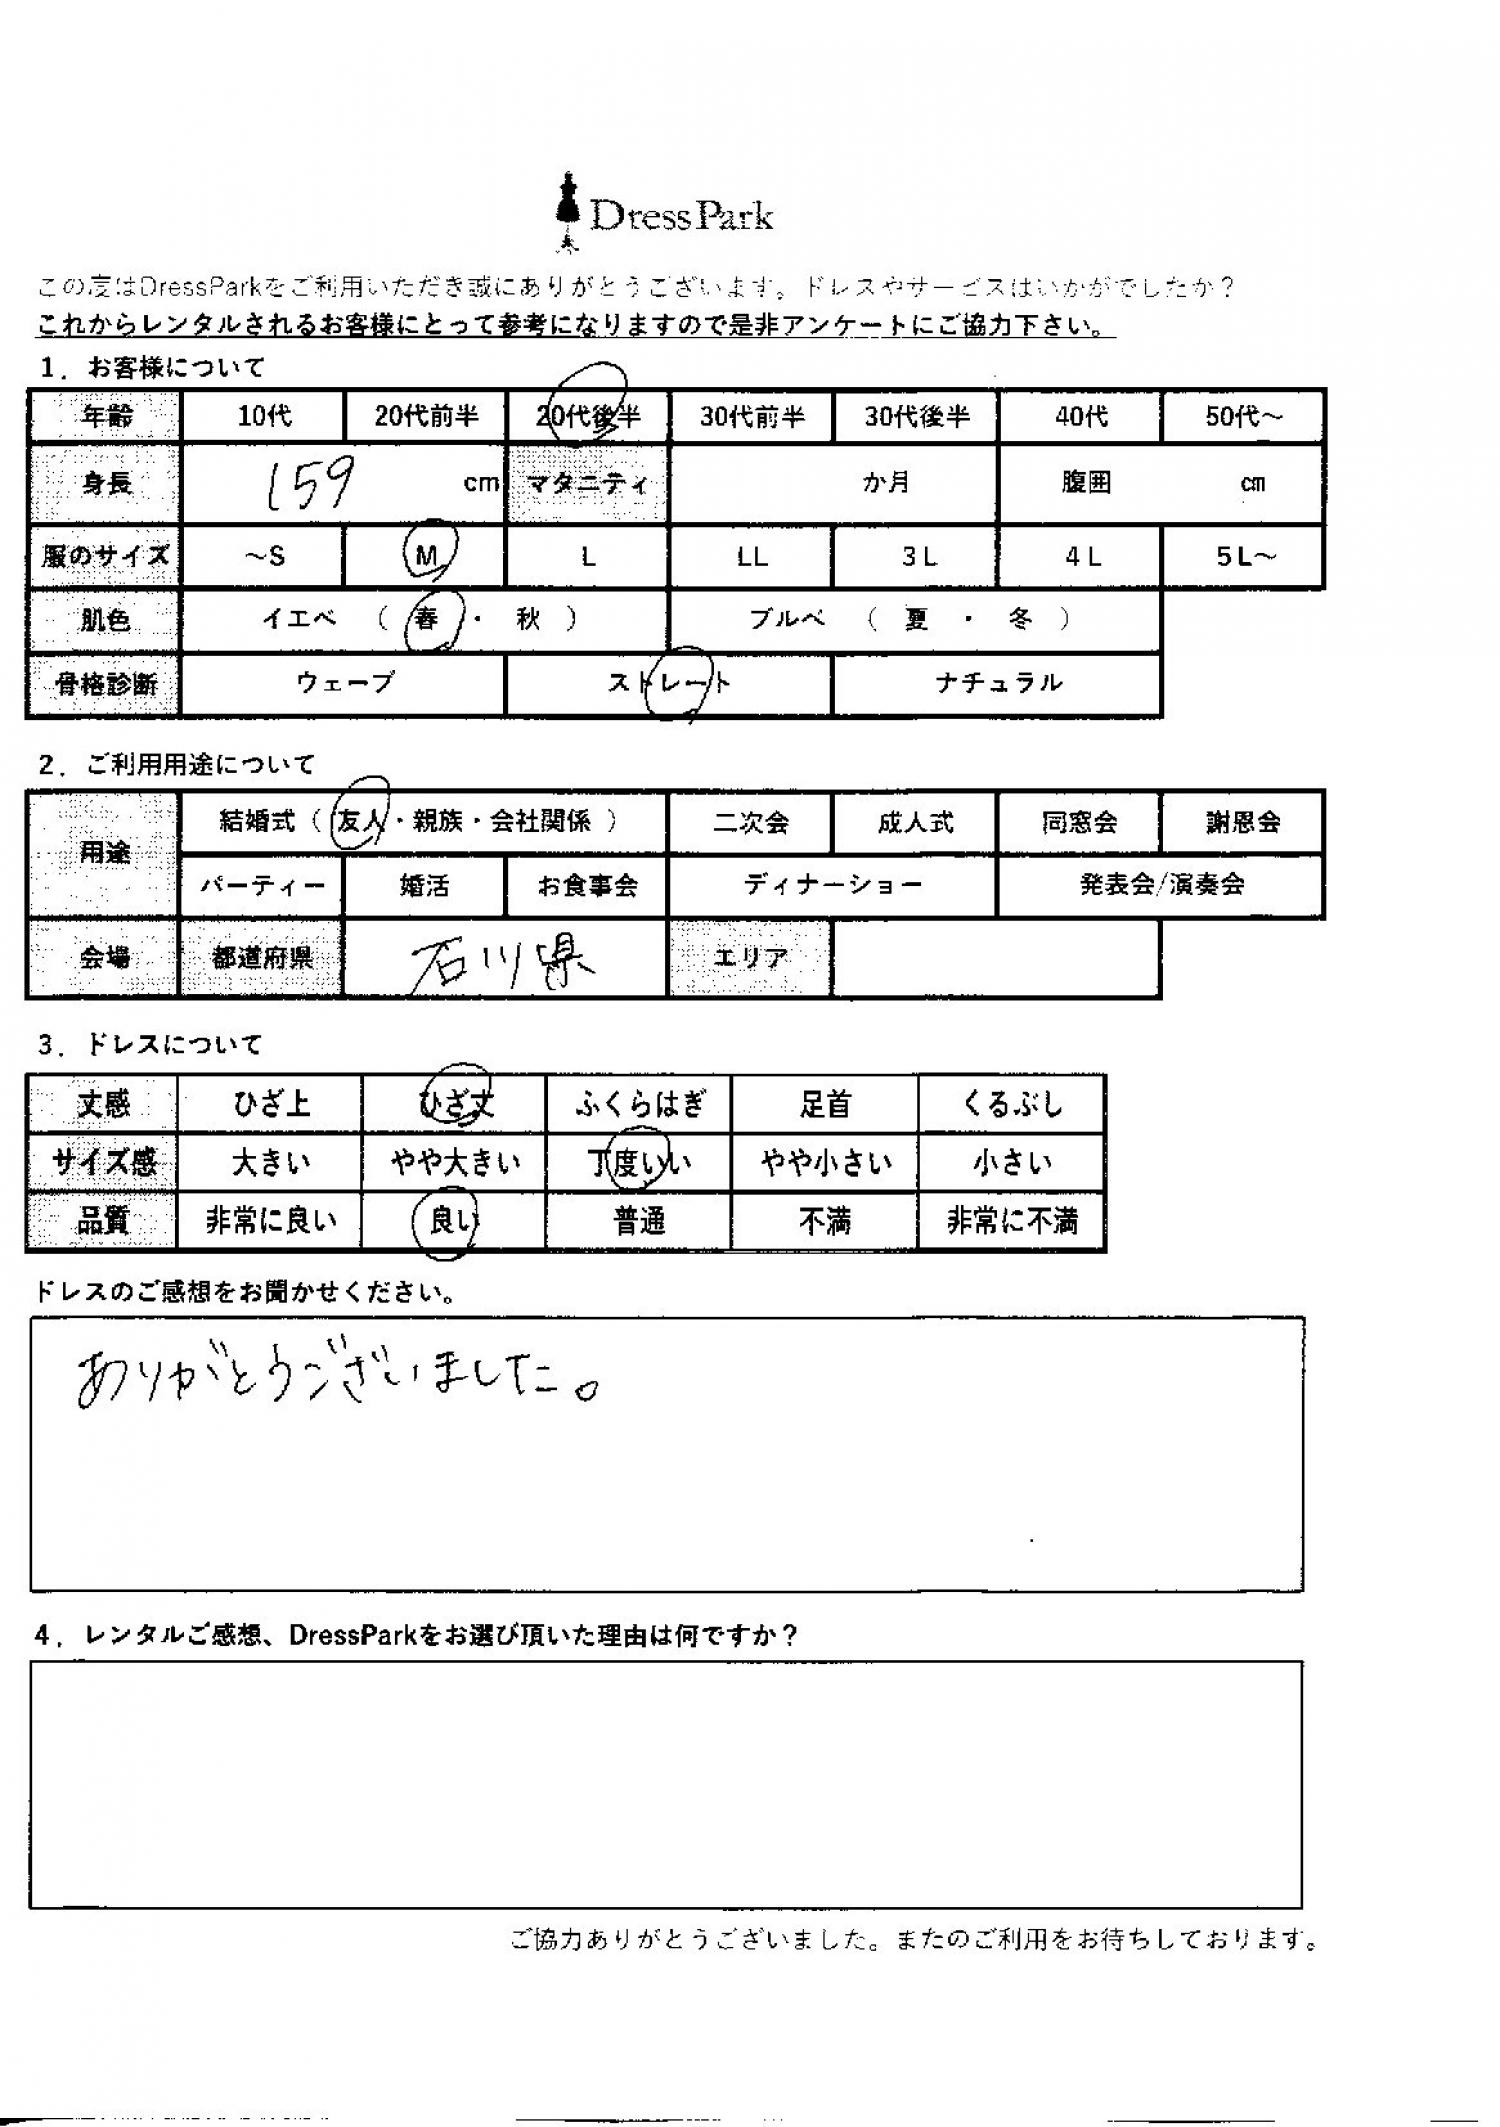 DressPark
この度はDressParkをご利用いただき誠にありがとうございます。ドレスやサービスはいかがでしたか？
これからレンタルされるお客様にとって参考になりますので是非アンケートにご協力下さい。
1．お客様について
年齢 10代 20代前半 20代後半 30代前半 30代後半 40代 50代～
身長 159 cm マタニティ か月 腹囲 cm
服のサイズ ～S M L LL 3L 4L 5L～
肌色 イエベ （ 春 ・ 秋 ） ブルベ （ 夏 ・ 冬 ）
骨格診断 ウェーブ ストレート ナチュラル
2．ご利用用途について
用途 結婚式（ 友人・親族・会社関係 ） 二次会 成人式 同窓会 謝恩会
パーティー 婚活 お食事会 ディナーショー 発表会/演奏会
会場 都道府県 石川県 エリア
3．ドレスについて
丈感 ひざ上 ひざ丈 ふくらはぎ 足首 くるぶし
サイズ感 大きい やや大きい 丁度いい やや小さい 小さい
品質 非常に良い 良い 普通 不満 非常に不満
ドレスのご感想をお聞かせください。
ありがとうございました。
4．レンタルご感想、DressParkをお選び頂いた理由は何ですか？
ご協力ありがとうございました。またのご利用をお待ちしております。